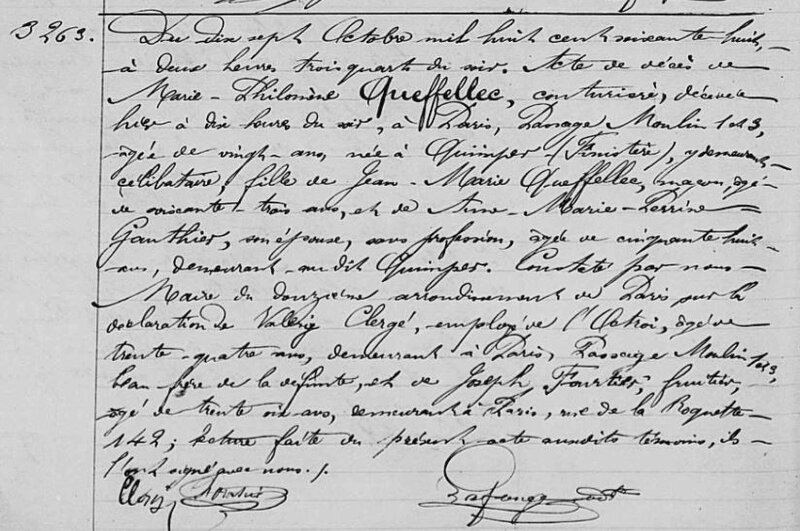 3263. Du dix sept Octobre mil huit cent soixante huit,
à deux heures trois quarts du soir. Acte de décès de
Marie-Philomène Queffellec, couturière, décédée
hier à dix heures du soir, à Paris, Passage Moulin 1 et 3,
âgée de vingt ans, née à Quimper (Finistère), y demeurant
célibataire, fille de Jean-Marie Queffellec, maçon, âgé
de soixante-trois ans, et de Anne-Marie-Perrine
Gauthier, son épouse, sans profession, âgée de cinquante huit
ans, demeurant audit Quimper. Constaté par nous
Maire du douzième arrondissement de Paris sur la
déclaration de Valéry Clergé, employé de l'Octroi, âgé de
trente-quatre ans, demeurant à Paris, Passage Moulin 1 et 3,
beau-frère de la défunte, et de Joseph Fourtier, fruitier,
âgé de trente ans, demeurant à Paris, rue de la Roquette
142; lecture faite du présent acte auxdits témoins, ils
l'ont signé avec nous. /.